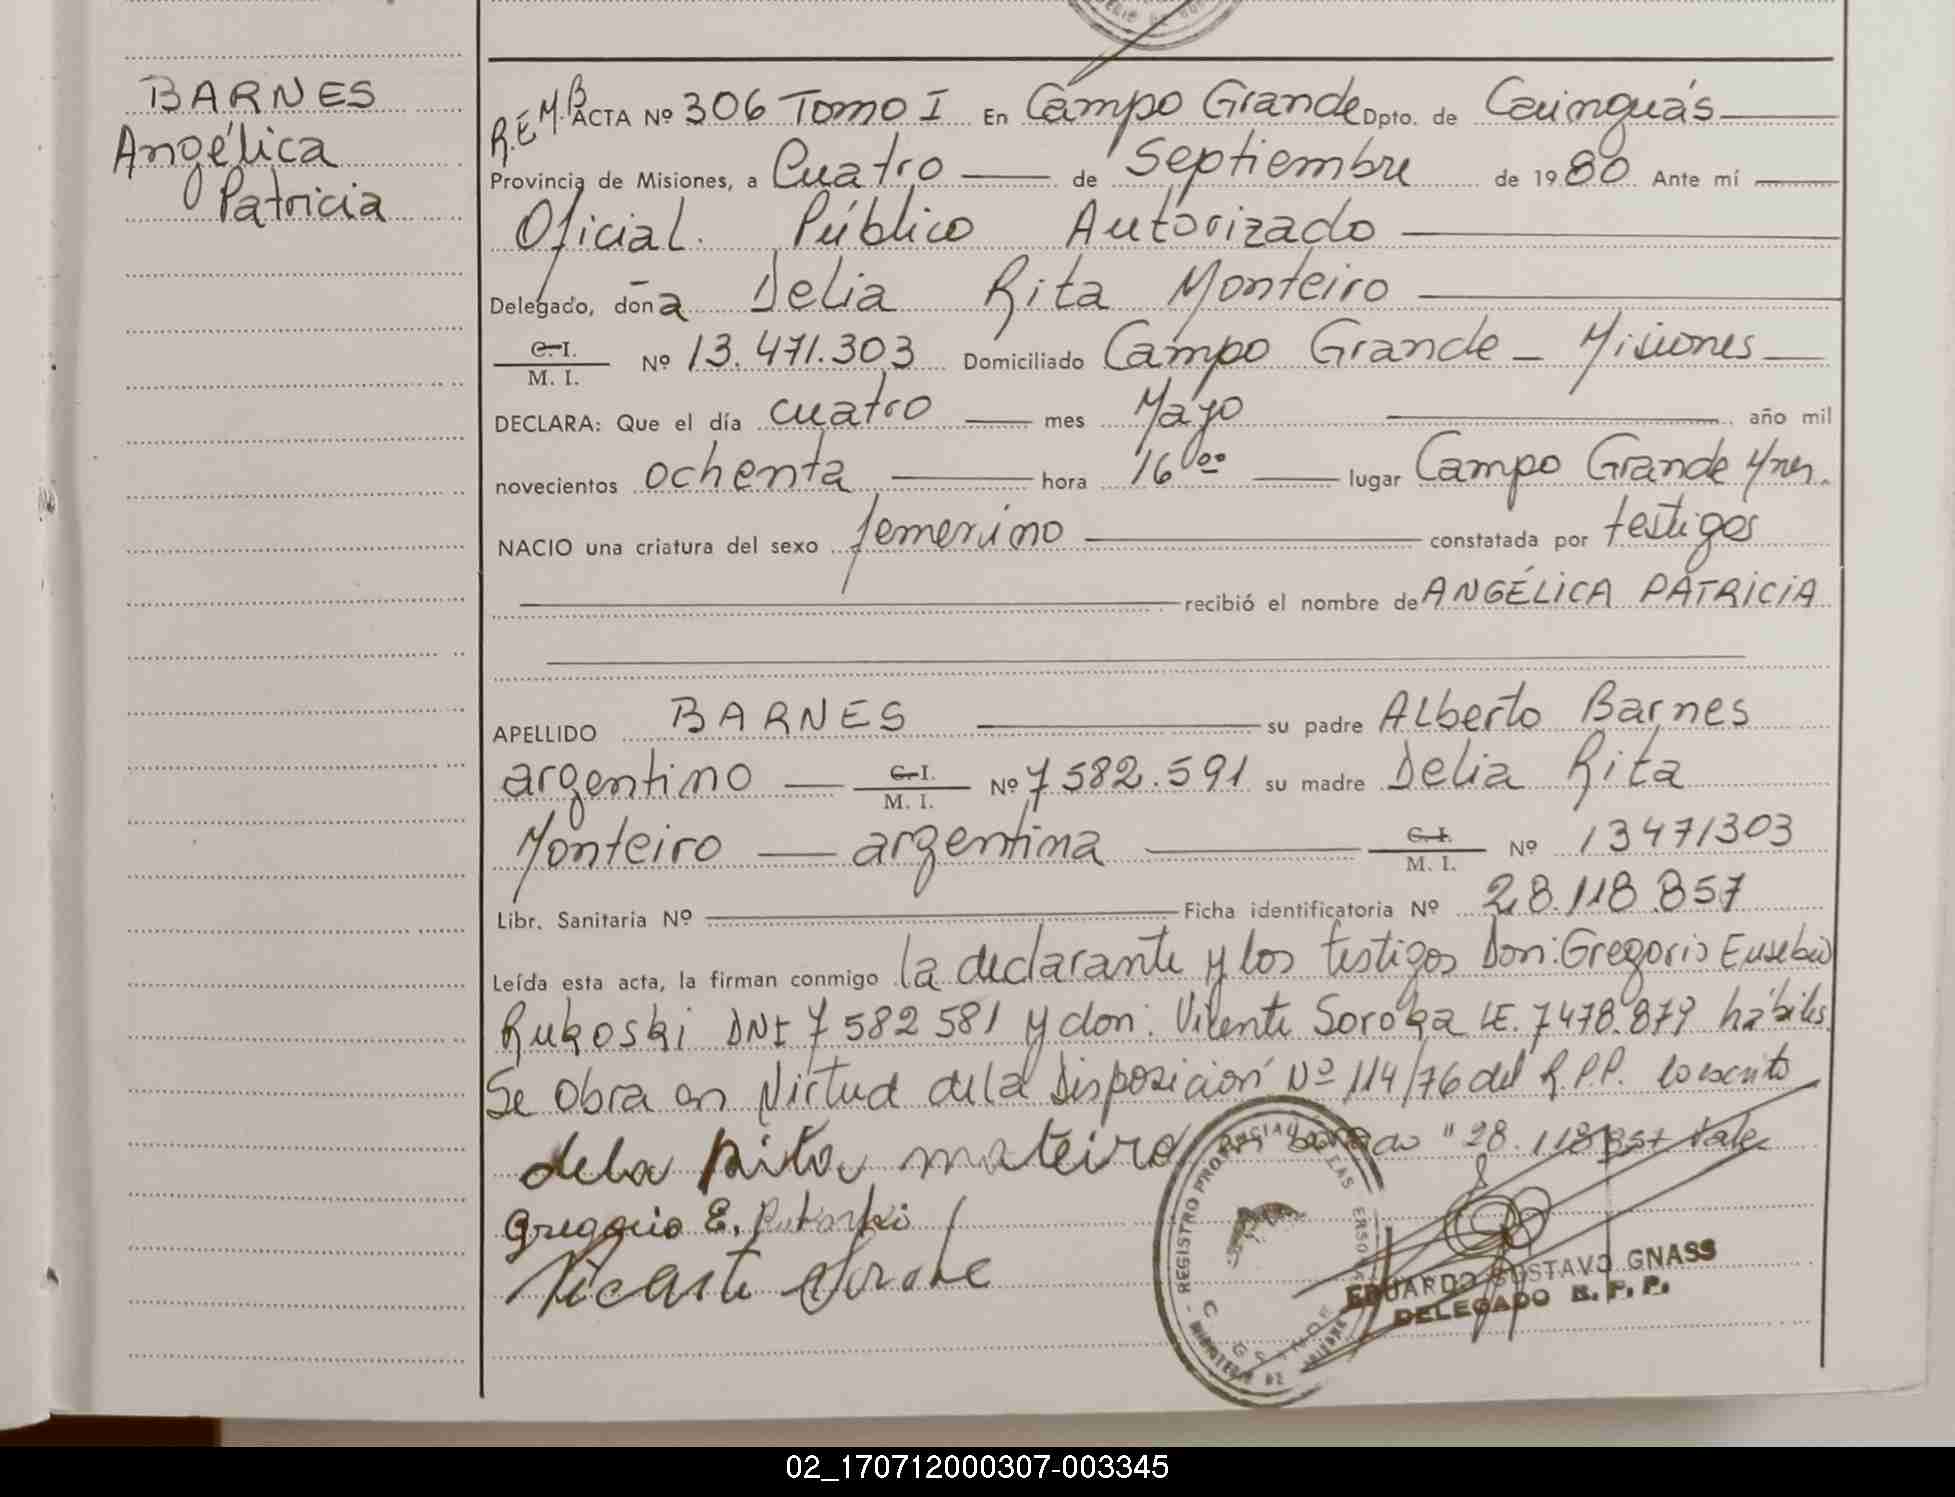 BARNES
Angélica
Patricia
R.E.M.B
ACTA Nº 306 Tomo I En Campo Grande Dpto. de Cainguás
Provincia de Misiones, a Cuatro de Septiembre de 1980 Ante mí
Oficial Público Autorizado
Delegado, doña Delia Rita Monteiro
C. I.
M. I. Nº 13.471.303 Domiciliado Campo Grande - Misiones
DECLARA: Que el día cuatro mes Mayo año mil
novecientos ochenta hora 16 00 lugar Campo Grande Mnes.
NACIO una criatura del sexo femenino constatada por testigos
recibió el nombre de ANGÉLICA PATRICIA
APELLIDO BARNES su padre Alberto Barnes
argentino C. I. M. I. Nº 7582.591 su madre Delia Rita
Monteiro argentina C. I. M. I. Nº 13471303
Libr. Sanitaria Nº Ficha identificatoria Nº 28.118.857
Leída esta acta, la firman conmigo la declarante y los testigos Don: Gregorio Eusebio
Rukoski DNI 7582581 y don: Vicente Soroka LE. 7478.879 hábiles.
Se obra en Virtud de la Disposición Nº 114/76 del R.P.P. lo escrito
dela Rita mateiro "28.118.857 Vale
Greggorio E. Rukoski
REGISTRO PROVINCIAL DE LAS PERSONAS
MINISTERIO DE
EDUARDO GUSTAVO GNASS
DELEGADO R. P. P.
02_170712000307-003345